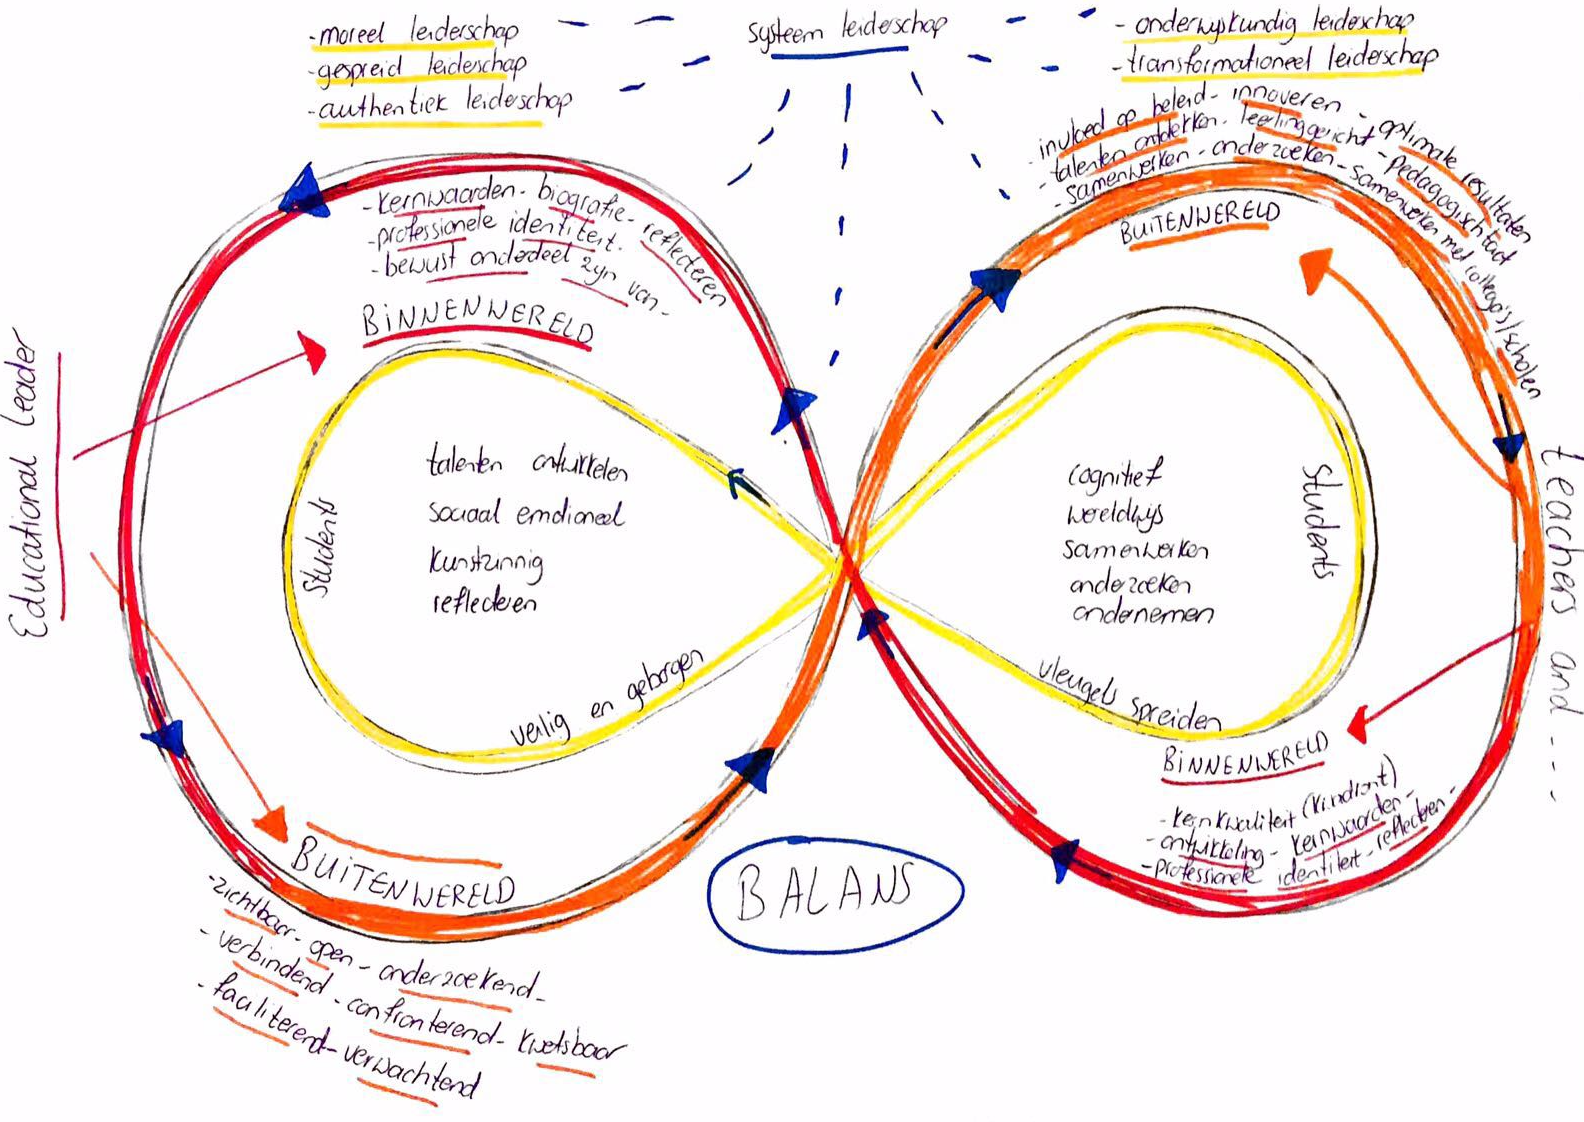 -moreel leiderschap
-gespreid leiderschap
-authentiek leiderschap
systeem leiderschap
- onderwijskundig leiderschap
-transformationeel leiderschap
- invloed op beleid - innoveren - optimale resultaten
- talenten ontdekken - leerlinggericht - pedagogisch tact
- samenwerken - onderzoeken - samenwerken met collega's/scholen
BUITENWERELD
- kernwaarden - biografie - reflecteren
-professionele identiteit.
- bewust onderdeel zijn van -
BINNENWERELD
Educational leader
Students
talenten ontwikkelen
sociaal emotioneel
kunstzinnig
reflecteren
veilig en geborgen
cognitief
wereldwijs
samenwerken
onderzoeken
ondernemen
Students
vleugels spreiden
teachers and ----
BINNENWERELD
- kernkwaliteit
- ontwikkeling - kernwaarden -
- professionele identiteit - reflecteren -
BUITENWERELD
-zichtbaar - open - onderzoekend -
- verbindend - confronterend - kwetsbaar
- faciliterend - verwachtend
BALANS